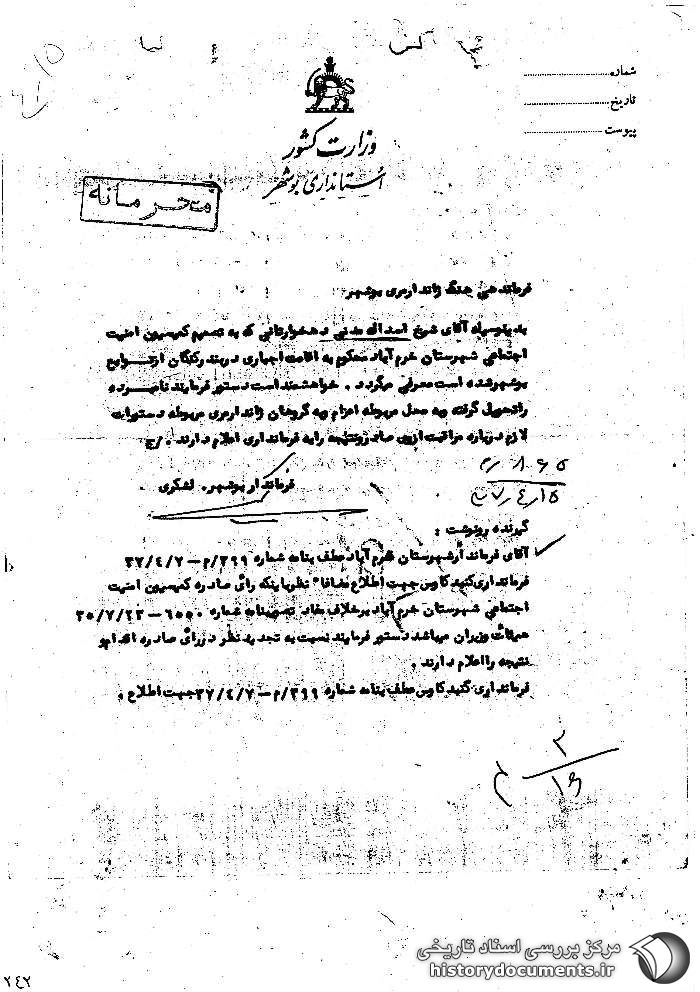 شماره
تاریخ
پیوست
وزارت کشور
استانداری بوشهر
محرمانه
فرماندهی هنگ ژاندارمری بوشهر
بدینوسیله آقای شیخ اسداله مدنی دهخوارقانی که به تصمیم کمیسیون امنیت
اجتماعی شهرستان خرم آباد محکوم به اقامت اجباری در بندر کنگان از توابع
بوشهر شده است معرفی میگردد . خواهشمند است دستور فرمایند نامبرده
را تحویل گرفته و به محل مربوطه اعزام و به گروهان ژاندارمری مربوطه دستورات
لازم درباره مراقبت از وی صادر و نتیجه را به فرمانداری اعلام دارند . /ج
فرماندار بوشهر . لشکری
۸۶۵
گیرنده رونوشت :
آقای فرماندار شهرستان خرم آباد عطف بنامه شماره ۳۹۹/م-۳۷/۴/۷
فرمانداری گنبد کاوس جهت اطلاع مضافا" نظر باینکه رای صادره کمیسیون امنیت
اجتماعی شهرستان خرم آباد برخلاف مفاد تصویبنامه شماره ۶۵۰۰-۳۵/۷/۲۳
هیئت وزیران میباشد دستور فرمایند نسبت به تجدید نظر در رای صادره اقدام و
نتیجه را اعلام دارند .
فرمانداری گنبد کاوس عطف بنامه شماره ۳۹۹/م-۳۷/۴/۷ جهت اطلاع .
۲
۱۶
۲۴۲
مرکز بررسی اسناد تاریخی
historydocuments.ir